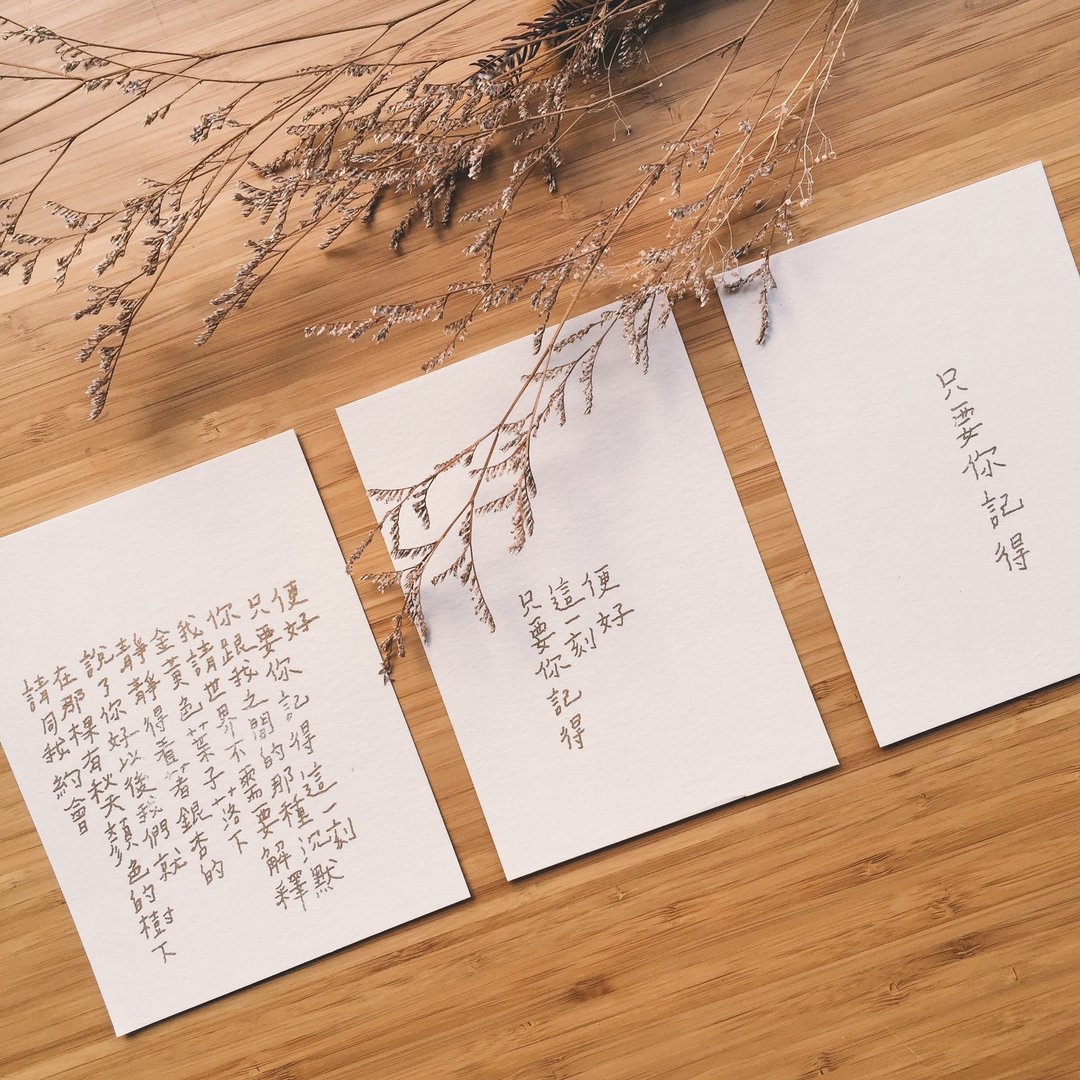 請同我約會
在那棵有秋天顏色的樹下
說了你好以後我們就
靜靜得看著銀杏的
金黃色葉子落下
我請世界不需要解釋
你跟我之間的那種沉默
只要你記得這一刻
便好
只要你記得
這一刻
便好
只要你記得